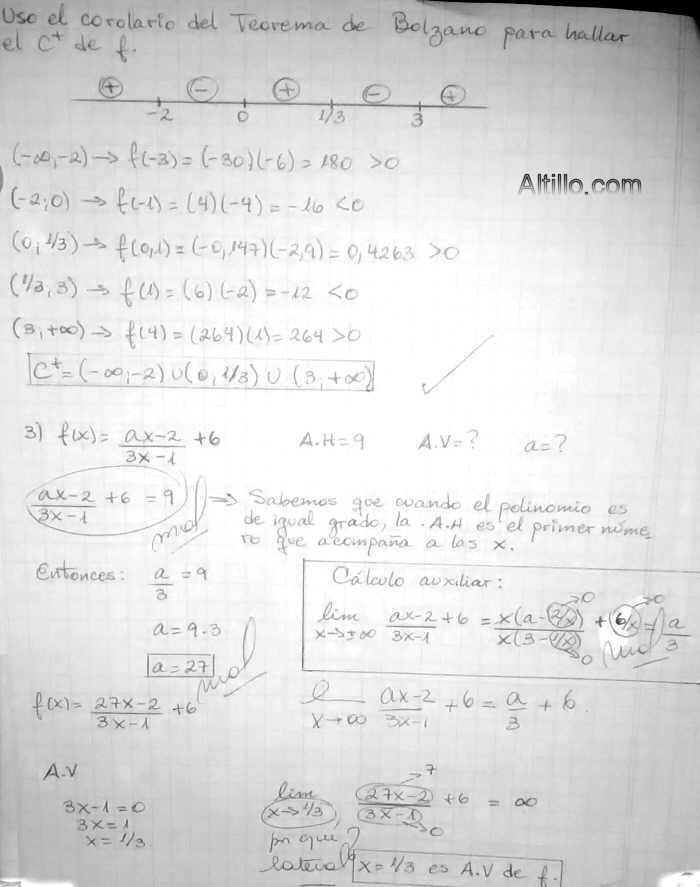 Uso el corolario del Teorema de Bolzano para hallar
el C⁺ de f.
+ − + − +
-2 0 1/3 3
(-∞,-2) → f(-3) = (-30)(-6) = 180 >0
Altillo.com
(-2;0) → f(-1) = (4)(-4) = -16 <0
(0,1/3) → f(0,1) = (-0,147)(-2,9) = 0,4263 >0
(1/3,3) → f(1) = (6)(-2) = -12 <0
(3,+∞) → f(4) = (264)(1) = 264 >0
C⁺ = (-∞,-2) ∪ (0,1/3) ∪ (3,+∞)
3) f(x) = (ax-2)/(3x-1) + 6 A.H = 9 A.V = ? a = ?
(ax-2)/(3x-1) + 6 = 9 ⇒ Sabemos que cuando el polinomio es
mal de igual grado, la A.H es el primer núme
ro que acompaña a las x.
Entonces: a/3 = 9
a = 9.3
a = 27
mal
Cálculo auxiliar:
lim x→±∞ (ax-2)/(3x-1) + 6 = x(a - 2/x)/x(3 - 1/x) + 6/x = a/3
→0 →0 →0
mal
f(x) = (27x-2)/(3x-1) + 6
l x→∞ (ax-2)/(3x-1) + 6 = a/3 + 6.
A.V
3x-1 = 0
3x = 1
x = 1/3.
lim x→1/3 (27x-2)/(3x-1) + 6 = ∞
→7 →0
por que?
lateral
x = 1/3 es A.V de f.